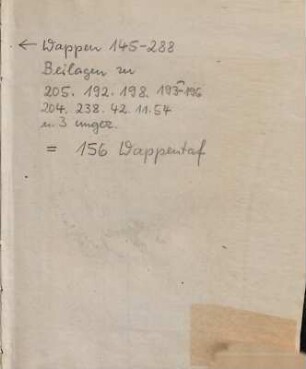 ← Wappen 145-288
Beilagen zu
205. 192. 198. 193-196
204. 238. 42. 11. 54
u. 3 ungez.
= 156 Wappentaf